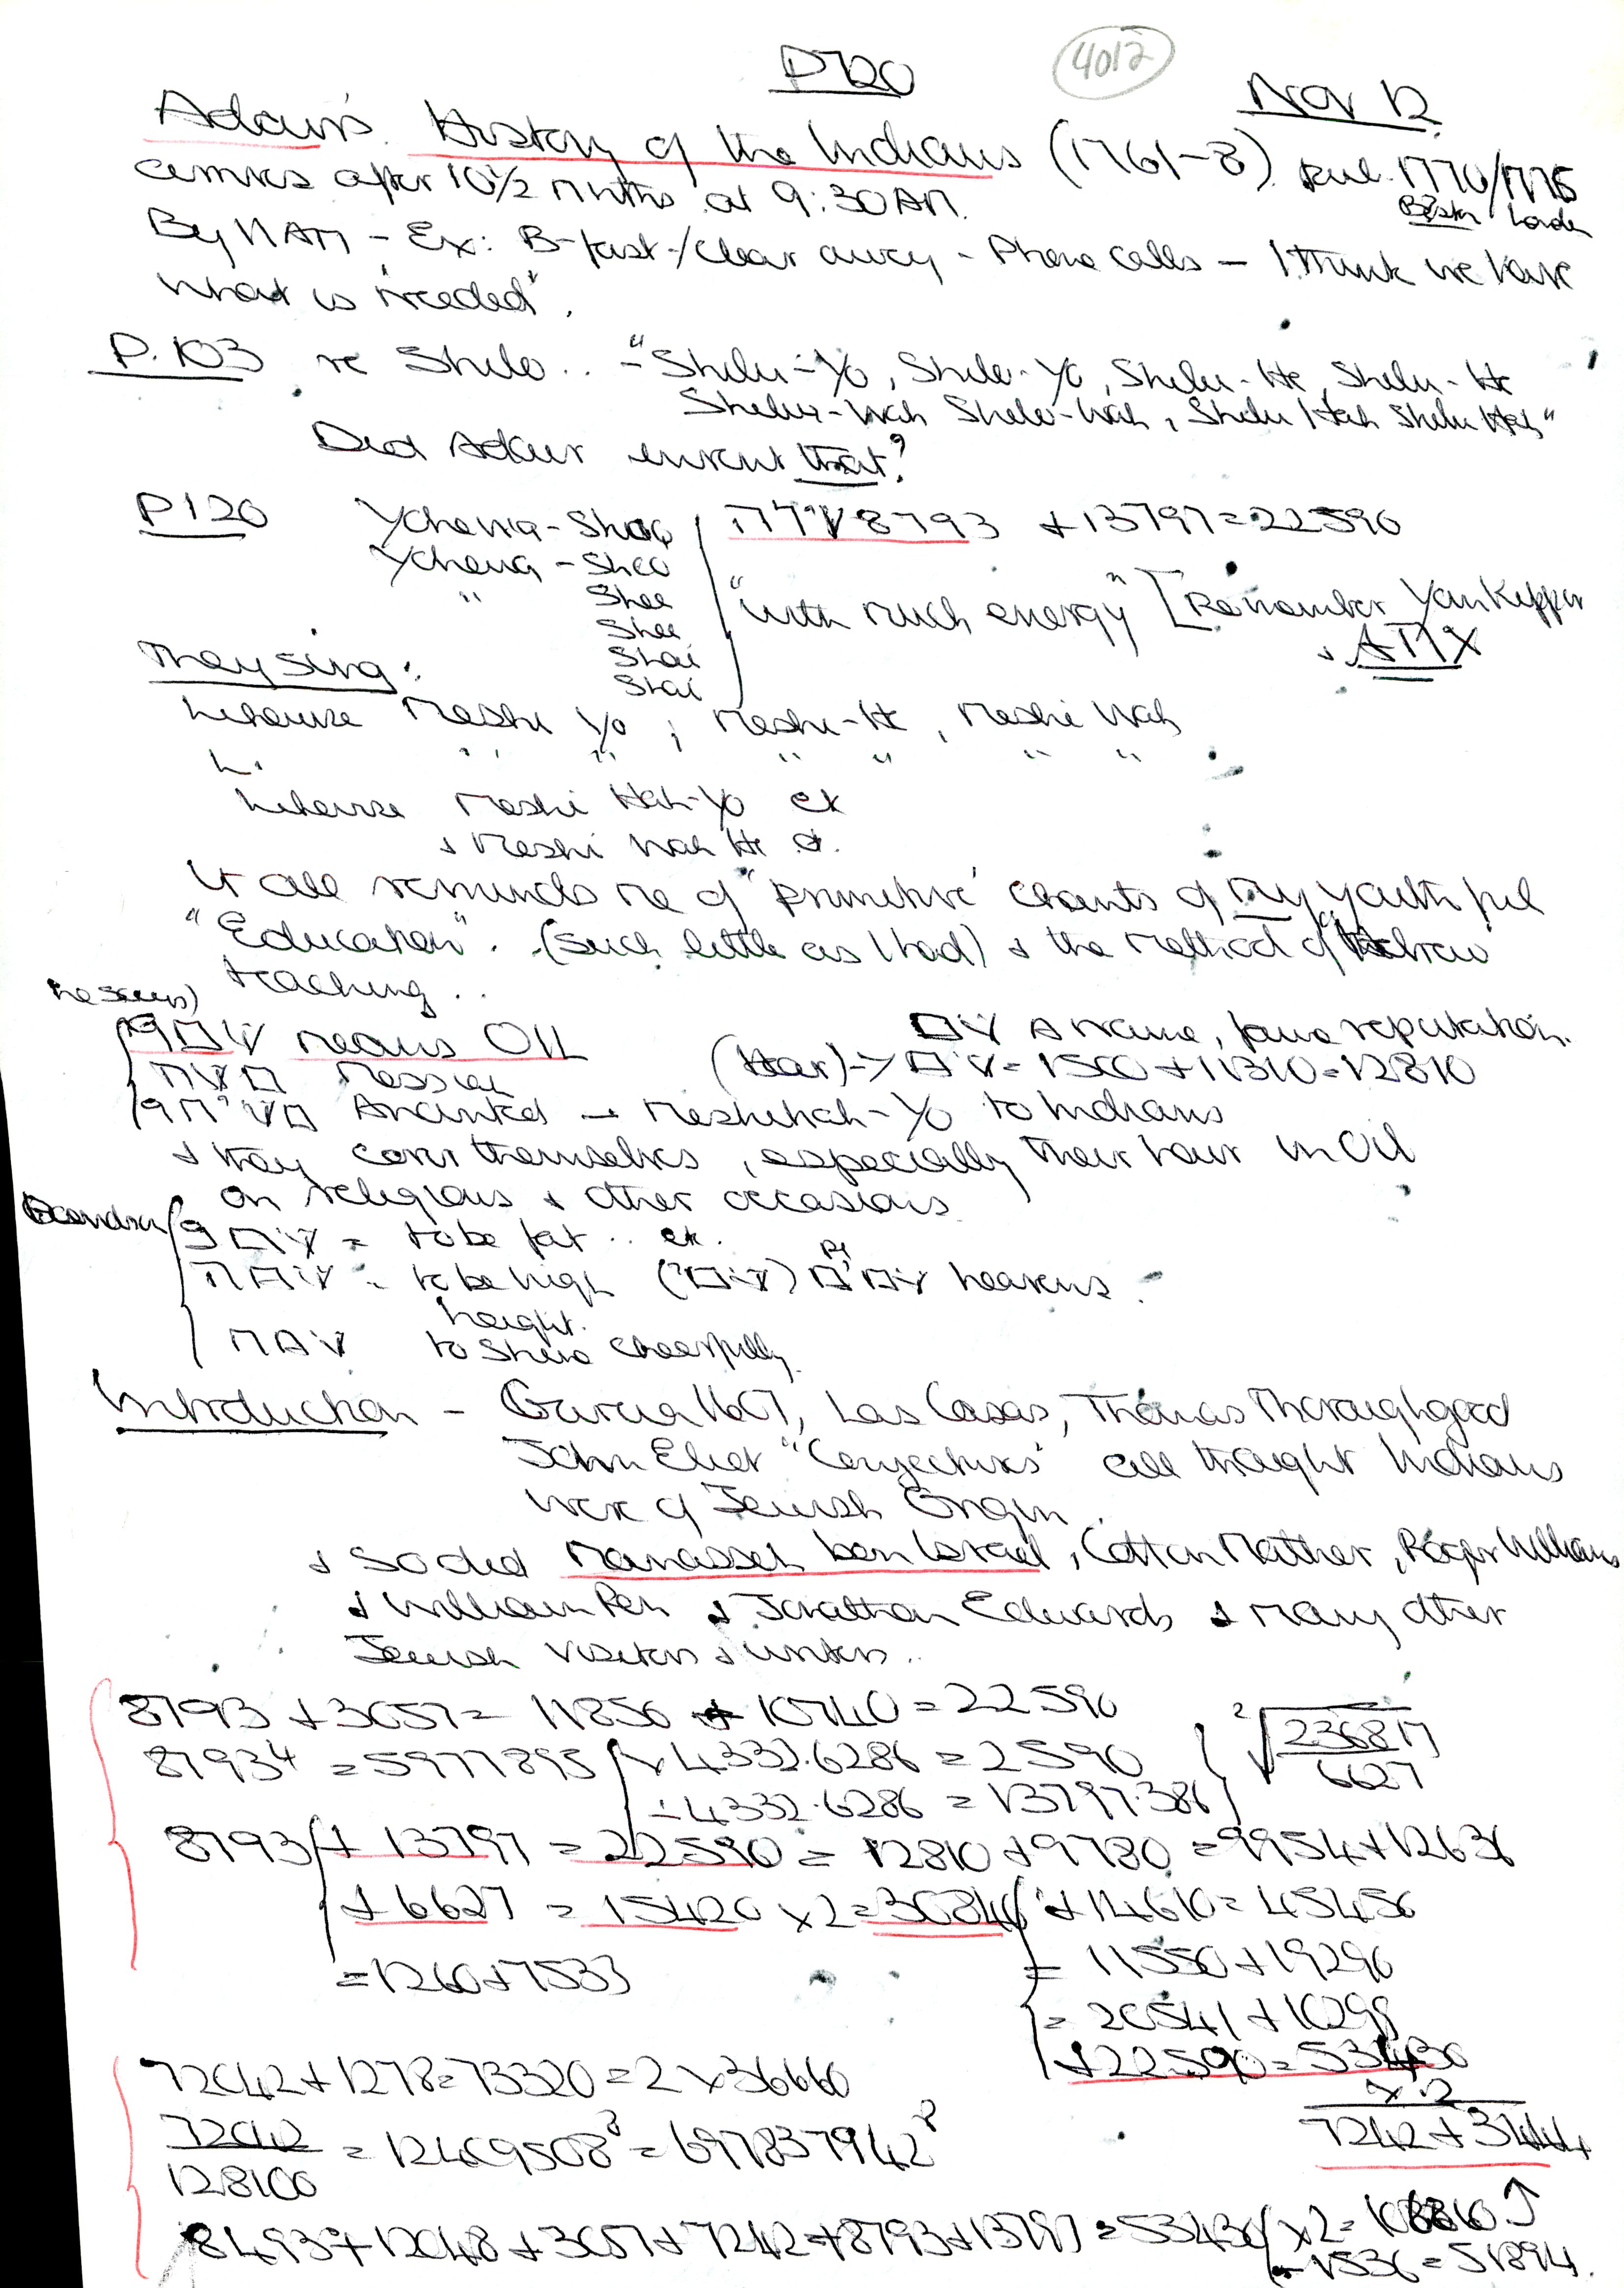 P720
4012
Nov 12
Adair's History of the Indians (1761-8) Publ. 1770/1775
Boston London
arrives after 10½ months at 9:30AM.
By 11AM - Ex: B-fast - /Clear away - Phone calls - I think we have
what is needed".
P.103 re Shilo.. - "Shilu-Yo, Shilu-Yo, Shilu-He, Shilu-He
Shilu-Wah Shilu-Wah, Shilu Hah Shilu Hah"
Did Adair invent that?
P120
8793 + 13797 = 22590
Shee
"with much energy" [Remember Yom Kippur
Shee
Shai
They sing:
Shai
Likewise Meshi Yo ; Meshi-He, Meshi Wah
Likewise Meshi Hah-Yo etc
+ Meshi Wah He etc.
It all reminds me of "primitive" chants of my youthful
"Education". (Such little as I had) + the method of Hebrew
teaching..
שמן means OIL
שם A name, fame reputation.
משח Messiah
שם = 1500 + 11310 = 12810
Anointed - Meshihah-Yo to Indians
+ they cover themselves, especially their hair in Oil
on religious + other occasions
שמן = to be fat .. etc.
= to be high שמים heavens.
height.
to shine cheerfully
Introduction - Garcia 1607, Las Casas, Thomas Thoroughgood
John Eliot "Conjectures" all thought Indians
were of Jewish Origin.
+ so did Manasseh ben Israel, Cotton Mather, Roger Williams
+ William Pen + Jonathan Edwards + many other
Jewish visitors + writers..
8793 + 3057 = 11850 + 10740 = 22590
8793⁴ = 5977895 × 4332.6286 = 2590
÷ 4332.6286 = 13797.386
8793 + 13797 = 22590 = 12810 + 9780 = 9954 + 12636
+ 6627 = 15420 × 2 = 30840 + 14610 = 45450
= 1260 + 7533
= 11550 + 19290
= 20541 + 10298
+ 22590 = 53430
72042 + 1278 = 73320 = 2 × 36660
× 2
72042
128100
= 12409508² = 697837942²
7242 + 3444
8493 + 12048 + 3057 + 7242 + 8793 + 13797 = 53430 × 2 = 106860
- 1536 = 51894.